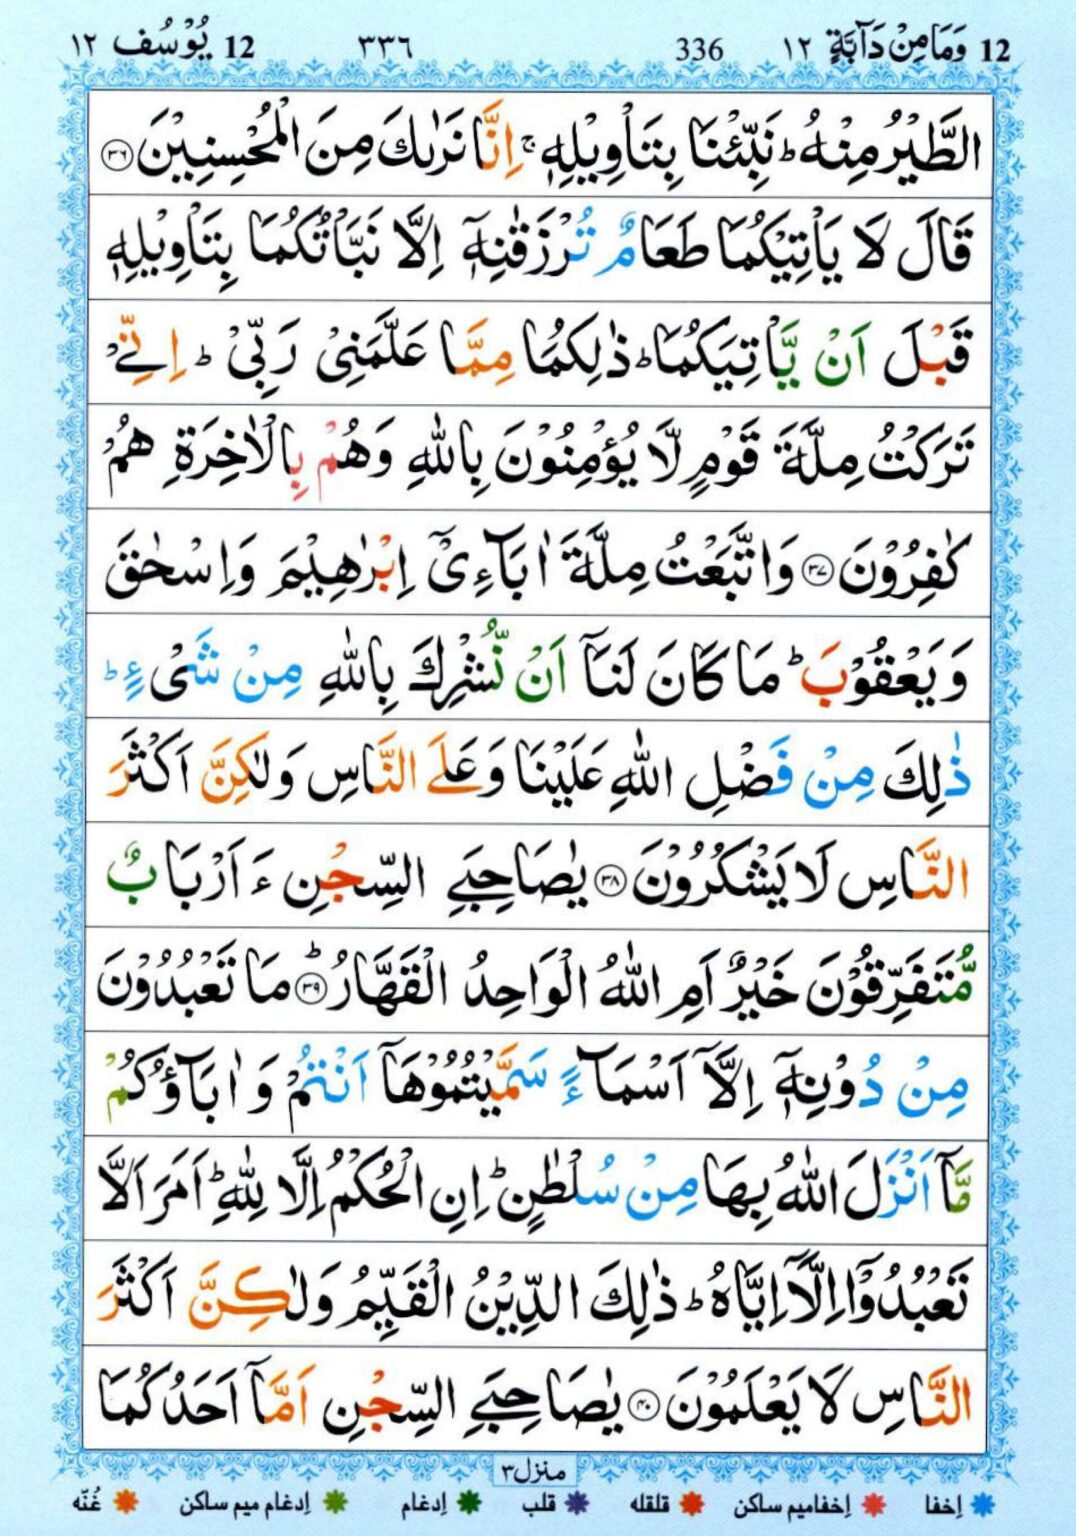 12 وَمَا مِنْ دَآبَّةٍ ١٢ 336 ٣٣٦ 12 يُوْسُف ١٢
الطَّيْرُ مِنْهُ ؕ نَبِّئْنَا بِتَاْوِيْلِهٖ ۚ اِنَّا نَرٰىكَ مِنَ الْمُحْسِنِيْنَ ﴿۳۶﴾
قَالَ لَا يَاْتِيْكُمَا طَعَامٌ تُرْزَقٰنِهٖۤ اِلَّا نَبَّاْتُكُمَا بِتَاْوِيْلِهٖ
قَبْلَ اَنْ يَّاْتِيَكُمَا ؕ ذٰلِكُمَا مِمَّا عَلَّمَنِيْ رَبِّيْ ؕ اِنِّيْ
تَرَكْتُ مِلَّةَ قَوْمٍ لَّا يُؤْمِنُوْنَ بِاللّٰهِ وَهُمْ بِالْاٰخِرَةِ هُمْ
كٰفِرُوْنَ ﴿۳۷﴾ وَاتَّبَعْتُ مِلَّةَ اٰبَآءِيْۤ اِبْرٰهِيْمَ وَاِسْحٰقَ
وَيَعْقُوْبَ ؕ مَا كَانَ لَنَاۤ اَنْ نُّشْرِكَ بِاللّٰهِ مِنْ شَيْءٍ ؕ
ذٰلِكَ مِنْ فَضْلِ اللّٰهِ عَلَيْنَا وَعَلَى النَّاسِ وَلٰكِنَّ اَكْثَرَ
النَّاسِ لَا يَشْكُرُوْنَ ﴿۳۸﴾ يٰصَاحِبَيِ السِّجْنِ ءَاَرْبَابٌ
مُّتَفَرِّقُوْنَ خَيْرٌ اَمِ اللّٰهُ الْوَاحِدُ الْقَهَّارُ ؕ﴿۳۹﴾ مَا تَعْبُدُوْنَ
مِنْ دُوْنِهٖۤ اِلَّاۤ اَسْمَآءً سَمَّيْتُمُوْهَاۤ اَنْتُمْ وَاٰبَآؤُكُمْ
مَّاۤ اَنْزَلَ اللّٰهُ بِهَا مِنْ سُلْطٰنٍ ؕ اِنِ الْحُكْمُ اِلَّا لِلّٰهِ ؕ اَمَرَ اَلَّا
تَعْبُدُوْۤا اِلَّاۤ اِيَّاهُ ؕ ذٰلِكَ الدِّيْنُ الْقَيِّمُ وَلٰكِنَّ اَكْثَرَ
النَّاسِ لَا يَعْلَمُوْنَ ﴿۴۰﴾ يٰصَاحِبَيِ السِّجْنِ اَمَّاۤ اَحَدُكُمَا
منزل ٣
اِخفا اِخفامیم ساکن قلقله قلب اِدغام اِدغام میم ساکن غُنّه